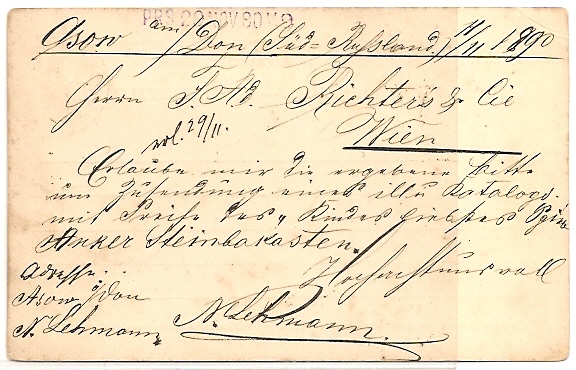 PBG 29 NOV 90 M 9
Asow am/Don (Süd-Russland) 11/11 1890
Herrn F. Ad. Richter's & Cie
Wien
29/11.
Erlaube mir die ergebene Bitte
um Zusendung eines illu. Katalogs
mit Preise des „Kindes liebstes
Anker Steinbakasten.
Hochachtungsvoll
Adresse.
Asow a/Don
N. Lehmann
N. Lehmann.